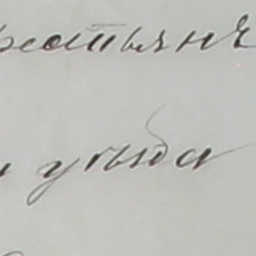 рестьянъ
уѣзда